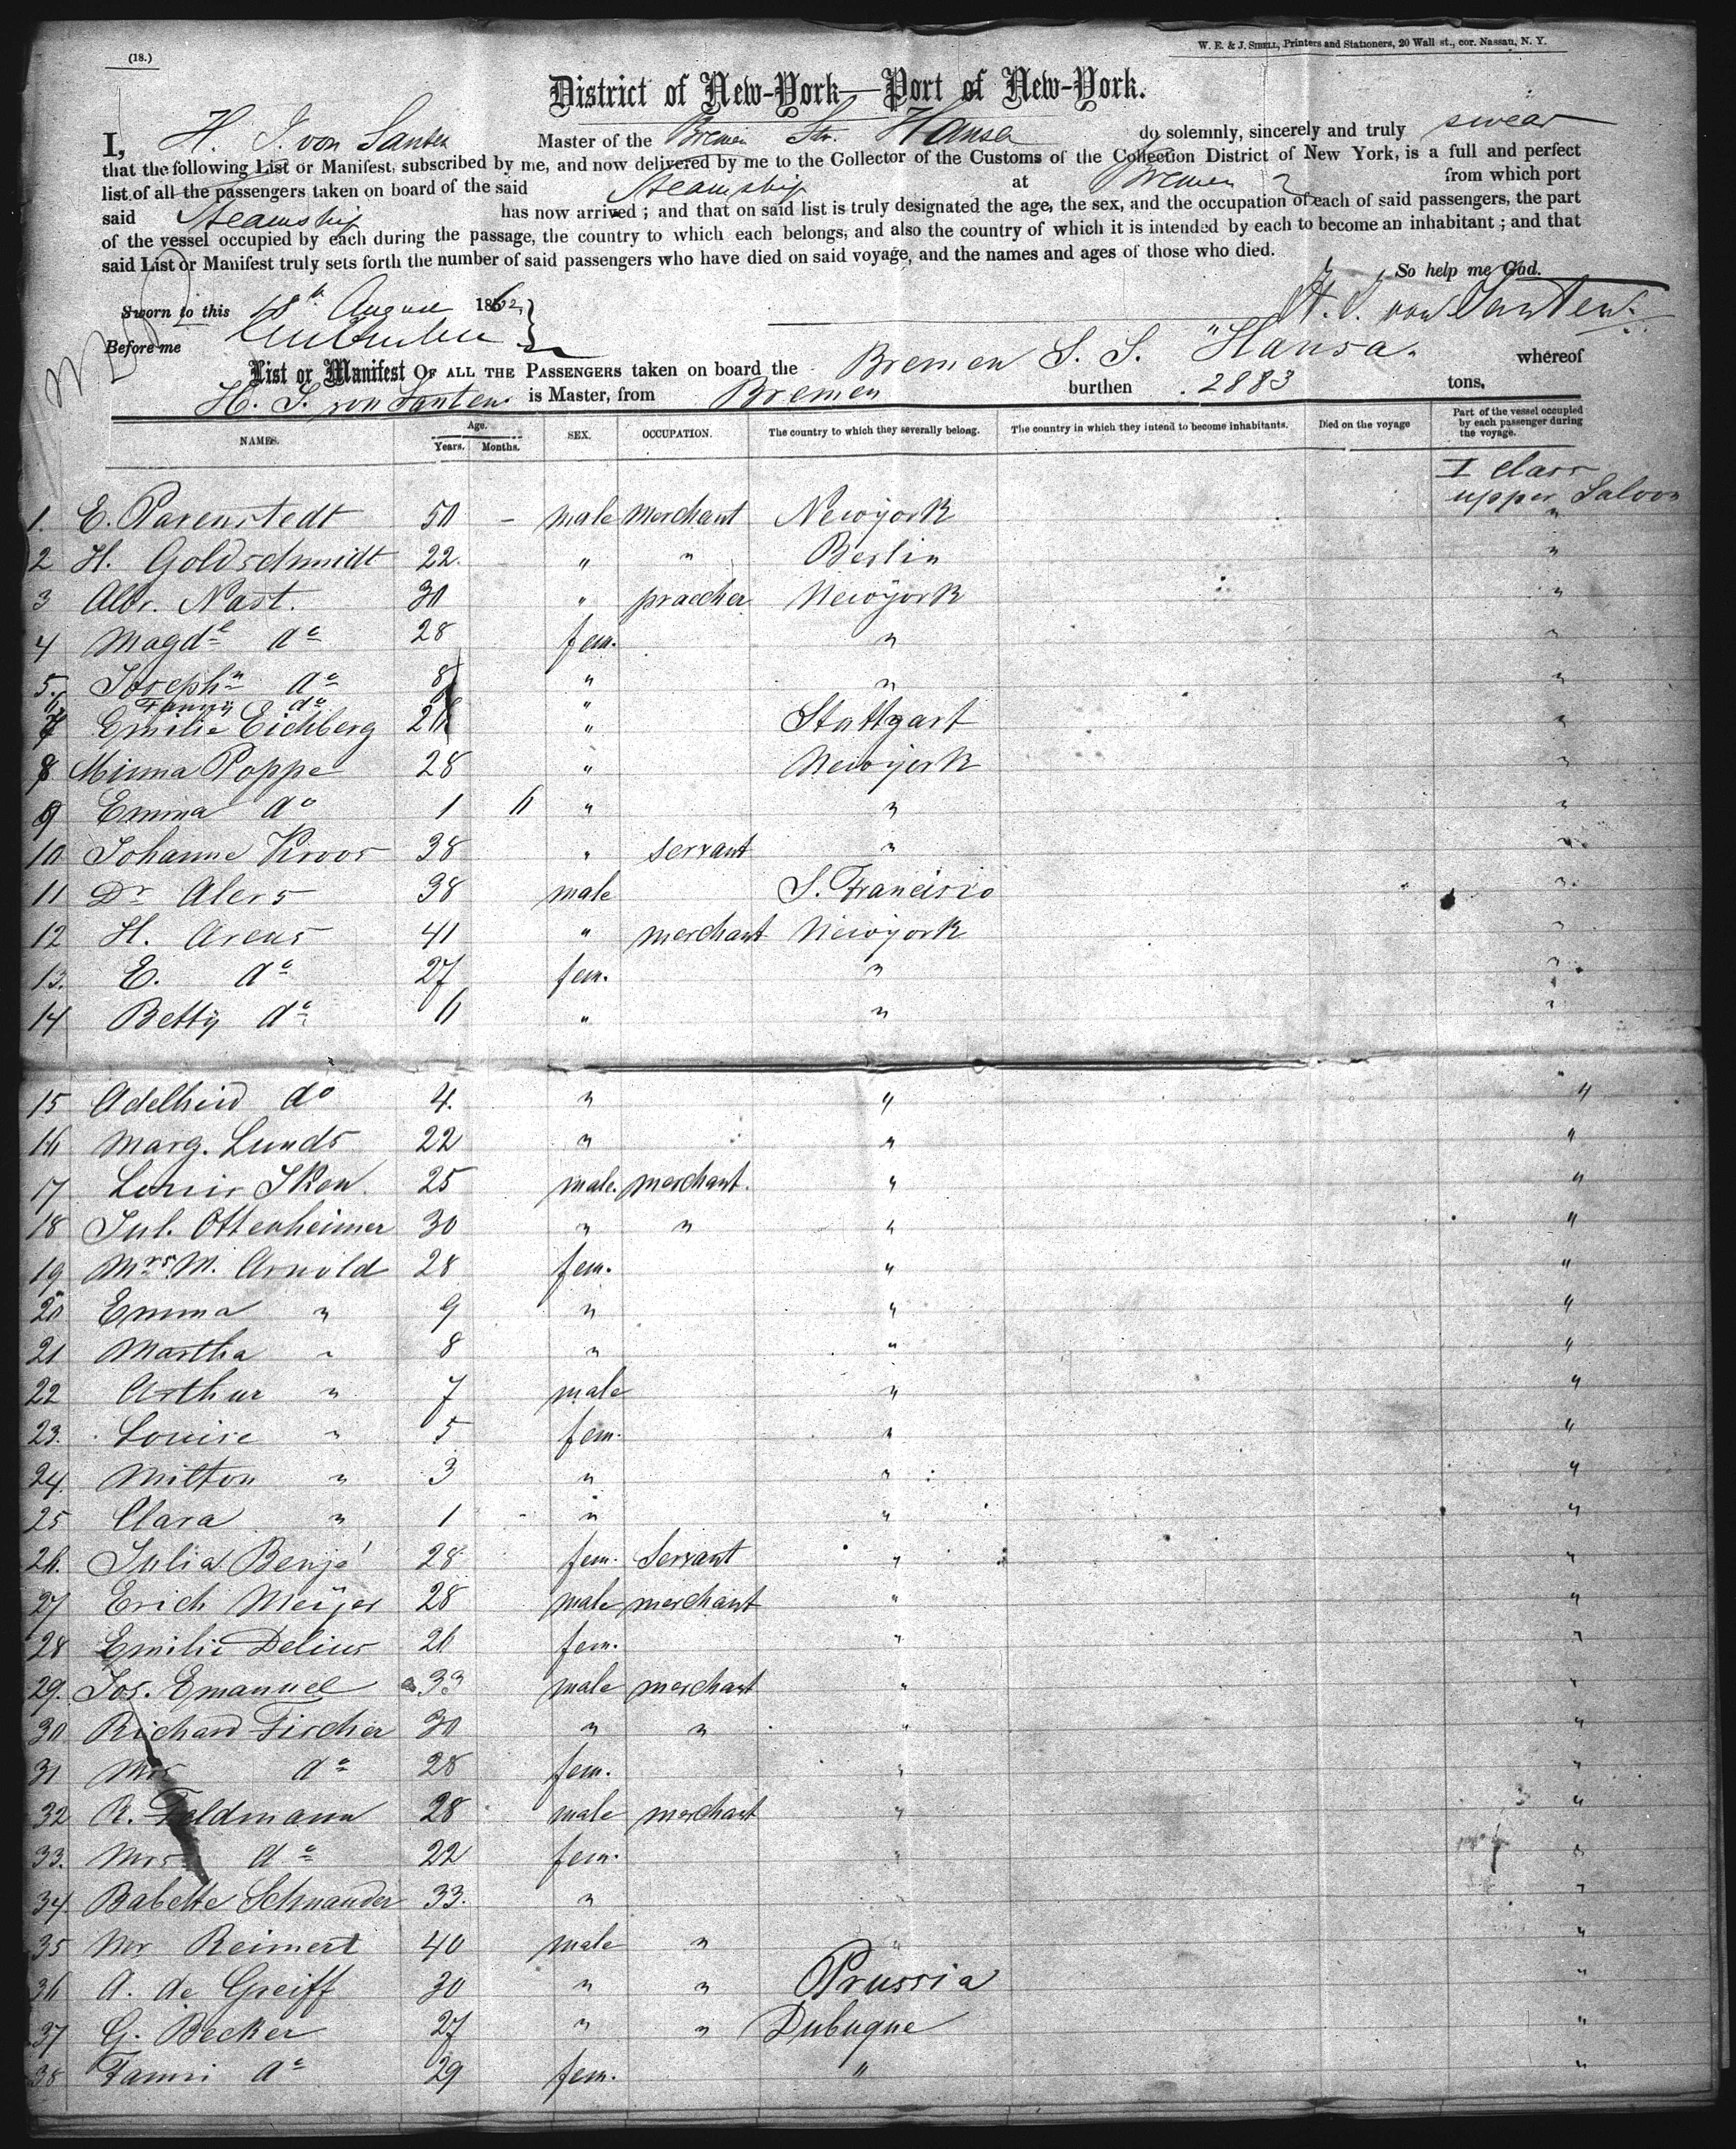 (18.)
W. E. & J. Sibell, Printers and Stationers, 20 Wall st., cor. Nassau, N. Y.
District of New-York—Port of New-York.
I, H. J. von Santen Master of the Bremen Str. Hansa do solemnly, sincerely and truly swear
that the following List or Manifest, subscribed by me, and now delivered by me to the Collector of the Customs of the Collection District of New York, is a full and perfect
list of all the passengers taken on board of the said Steamship at Bremen from which port
said Steamship has now arrived; and that on said list is truly designated the age, the sex, and the occupation of each of said passengers, the part
of the vessel occupied by each during the passage, the country to which each belongs, and also the country of which it is intended by each to become an inhabitant; and that
said List or Manifest truly sets forth the number of said passengers who have died on said voyage, and the names and ages of those who died.
So help me God.
Sworn to this 18th August 1862
H. J. von Santen.
Before me
List or Manifest OF ALL THE PASSENGERS taken on board the Bremen S. S. "Hansa. whereof
H. J. von Santen is Master, from Bremen burthen 2883 tons.
NAMES. Age. Years. Months. SEX. OCCUPATION. The country to which they severally belong. The country in which they intend to become inhabitants. Died on the voyage Part of the vessel occupied by each passenger during the voyage.
I class
upper Saloon
1. E. Pavenstedt 50 - male merchant Newyork "
2 H. Goldschmidt 22. " " Berlin "
3 Albr. Nast. 30 " praecher Newyork "
4 Magdе do 28 fem. " "
5. Josephn do 8 " " "
6 Fanny do "
7 Emilie Eichberg " Stuttgart "
8 Minna Poppe 28 " Newyork "
9 Emma do 1 6 " " "
10 Johanne Kroos 38 " servant " "
11 Dr Alers 38 male S. Francisio "
12 H. Arens 41 " merchant Newyork "
13. E. do 27 fem. " "
14 Betty do 6 " " "
15 Adelheid do 4. " " "
16 Marg. Lunds 22 " " "
17 Louis Iken. 25 male. merchant. " "
18 Jul. Ottenheimer 30 " " " "
19 Mrs M. Arnold 28 fem. " "
20 Emma " 9 " " "
21 Martha " 8 " " "
22 Arthur " 7 male " "
23. Louise " 5 fem. " "
24. Milton " 3 " " "
25 Clara " 1 - " " "
26. Julia Benjé 28 fem. Servant " "
27 Erich Meÿer 28 male merchant " "
28 Emilie Delius 26 fem. " "
29. Jos. Emanuel 33 male merchant " "
30 Richard Fischer 30 " " " "
31 Mrs do 28 fem. " "
32 R. Feldmann 28 male merchant " "
33. Mrs do 22 fem. " "
34 Babette Schnauder 33. " " "
35 Mr Reimert 40 male " " "
36 A. de Greiff 30 " " Prussia "
37 G. Becker 27 " " Dubuque "
38 Fanni do 29 fem. " "